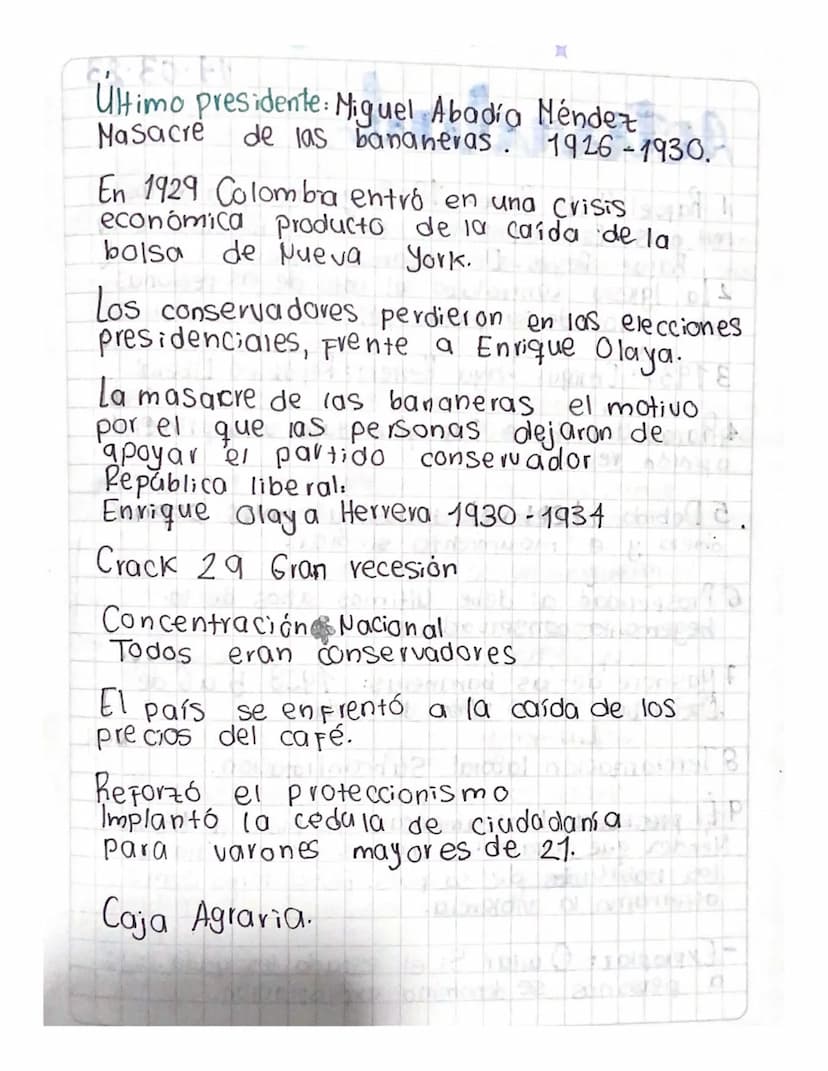 Último presidente: Miguel Abadía Méndez
Masacre de las bananeras. 1926-1930.
En 1929 Colomba entró en una crisis
económica producto de la caída de la
bolsa de Nueva York.
Los conservadores perdieron en las elecciones
presidenciales, frente a Enrique Olaya.
La masacre de las bananeras el motivo
por el que las personas dejaron de
apoyar el partido conservador
República liberal:
Enrique Olaya Herrera 1930-1934
Crack 29 Gran recesión
Concentración Nacional
Todos eran conservadores
El país se enfrentó a la caída de los
precios del café.
Reforzó el proteccionismo
Implantó la cedula de ciudadanía
para varones mayores de 21.
Caja Agraria.